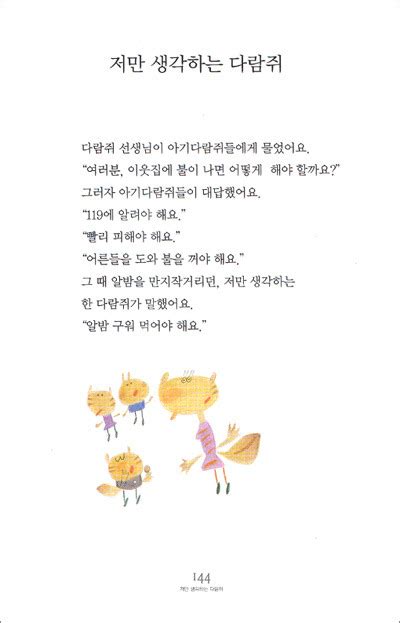 저만 생각하는 다람쥐
다람쥐 선생님이 아기다람쥐들에게 물었어요.
“여러분, 이웃집에 불이 나면 어떻게 해야 할까요?”
그러자 아기다람쥐들이 대답했어요.
“119에 알려야 해요.”
“빨리 피해야 해요.”
“어른들을 도와 불을 꺼야 해요.”
그 때 알밤을 만지작거리던, 저만 생각하는
한 다람쥐가 말했어요.
“알밤 구워 먹어야 해요.”
144
저만 생각하는 다람쥐